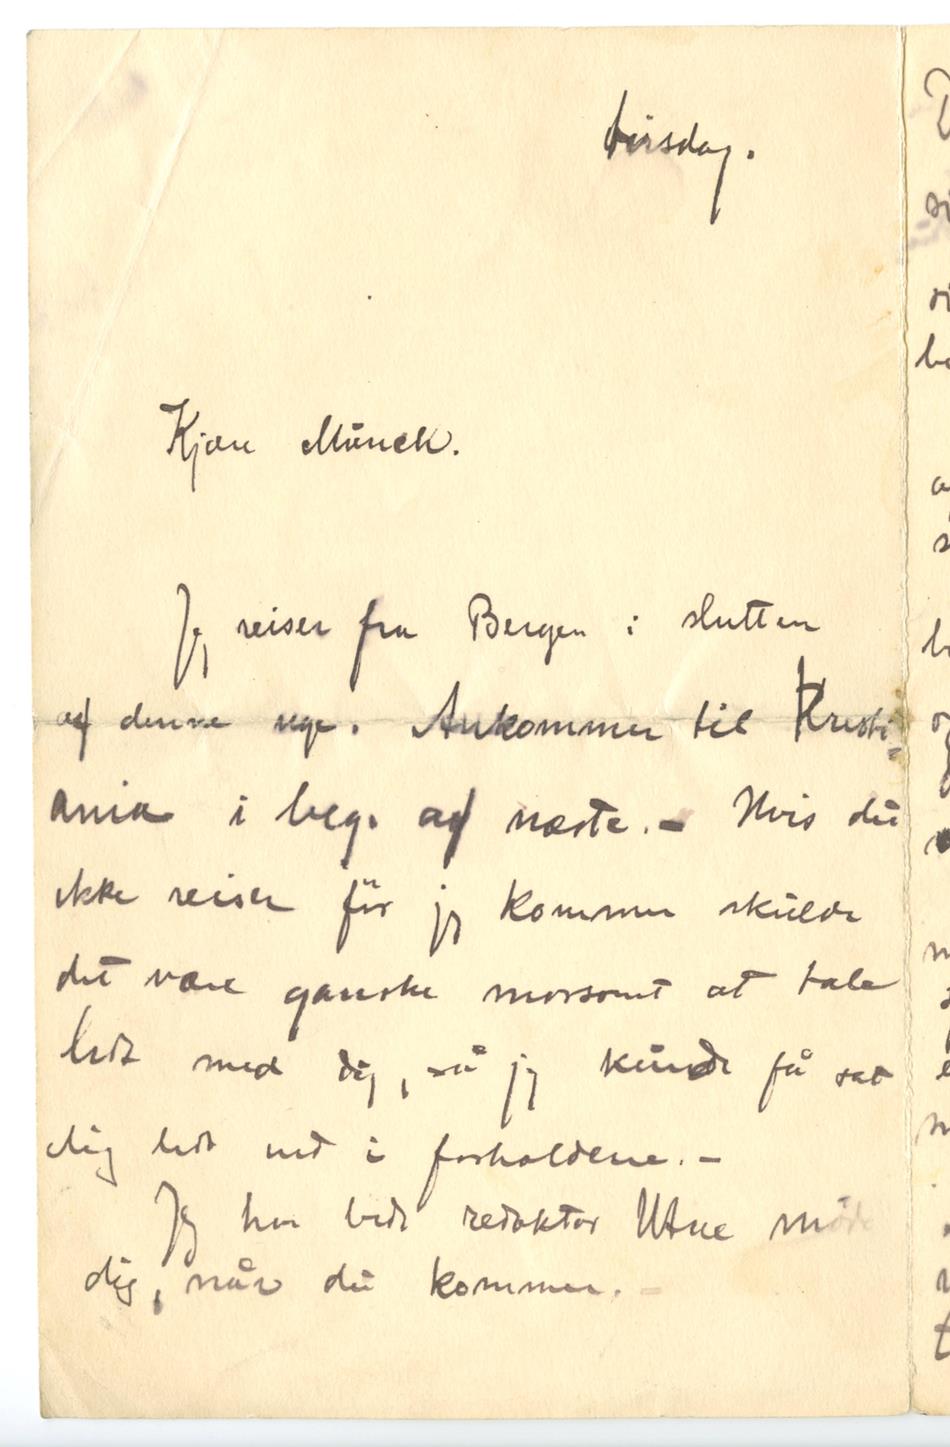 tirsdag.
Kjære Munch.
Jeg reiser fra Bergen i slutten
af denne uge. Ankommer til Kristi=
ania i beg. af næste. – Hvis du
ikke reiser før jeg kommer skulde
det være ganske morsomt at tale
lidt med dig, så jeg kunde få sat
dig lidt ind i forholdene. –
Jeg har bedt redaktør Utne møde
dig, når du kommer. –